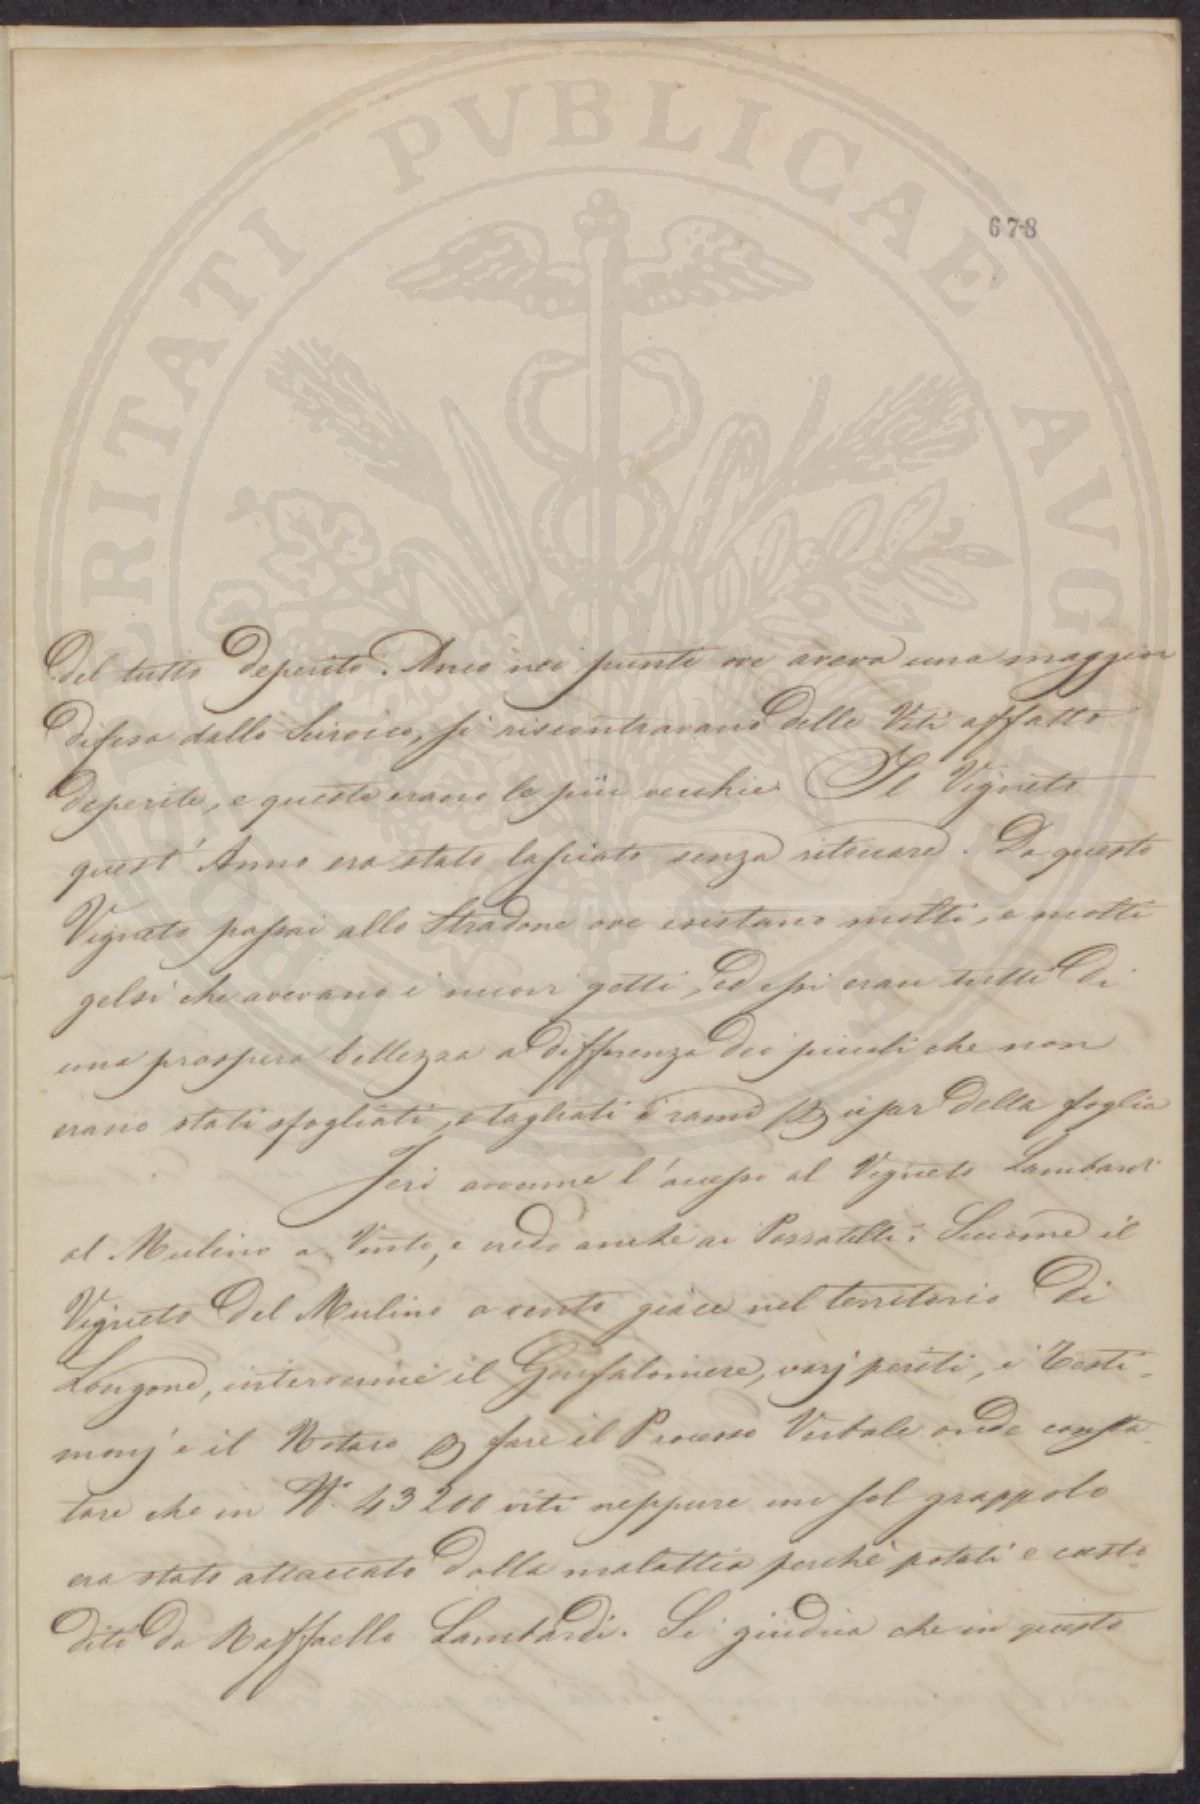 PROSPERITATI PVBLICAE AVGENDAE
678
del tutto deperito. Anco nei punti ove aveva una maggior
difesa dallo Sirocco, si riscontravano delle Viti affatto
deperite, e queste erano le più vecchie. Il Vigneto
quest' Anno era stato lasciato senza ritoccare. Da questo
Vigneto passai allo Stradone ove esistano molti, e molti
gelsi che avevano i nuovi getti, ed essi eran tutti di
una prospera bellezza a differenza dei piccoli che non
erano stati sfogliati, e tagliati i rami per usar della foglia
Jeri avvenne l'accesso al Vigneto Lambardi
al Mulino a Vento, e credo anche ai Siccome il
Vigneto del Mulino a vento giace nel territorio di
Longone, intervenne il Gonfaloniere, varj periti, i Testi-
monj e il Notaro per fare il Processo Verbale onde consta-
tare che in N.° 43200 viti neppure un sol grappolo
era stato attaccato dalla malattia perchè potati e custo-
diti da Raffaello Lambardi. Si giudica che in questo